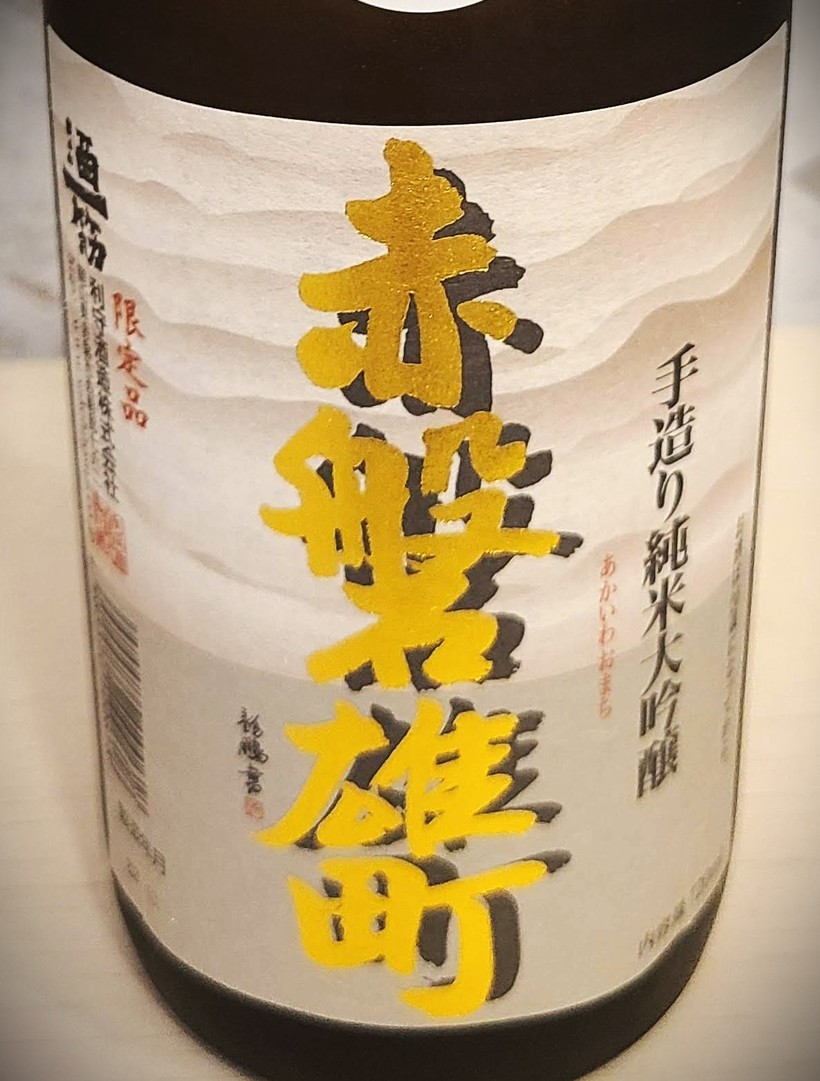 手造り純米大吟醸
あかいわおまち
赤磐雄町
龍鵬書
限定品
酒一筋
利守酒造株式会社